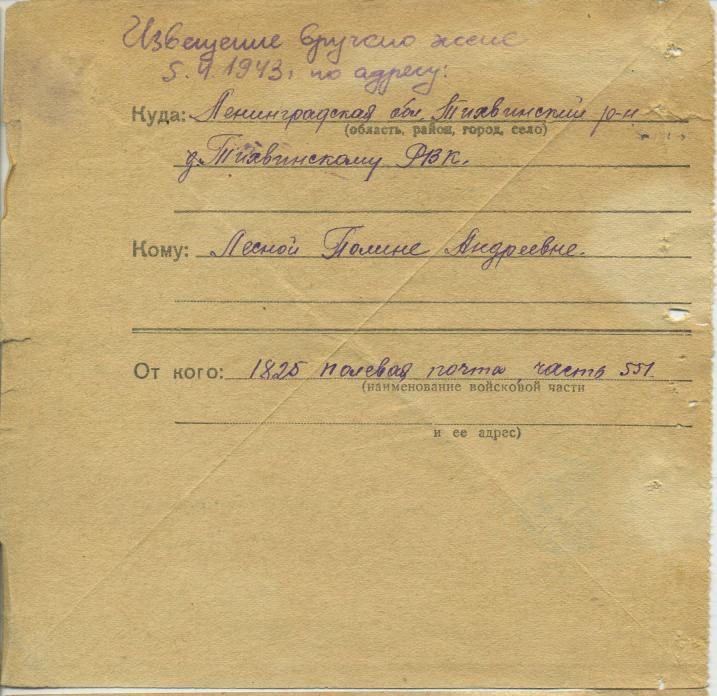 Извещение вручено жене
5.4.1943г по адресу:
Куда: Ленинградская обл. Тихвинский р-н
(область, район, город, село)
д. Тихвинскому РВК.
Кому: Лесной Полине Андреевне.
От кого: 1825 полевая почта, часть 551.
(наименование войсковой части
и ее адрес)